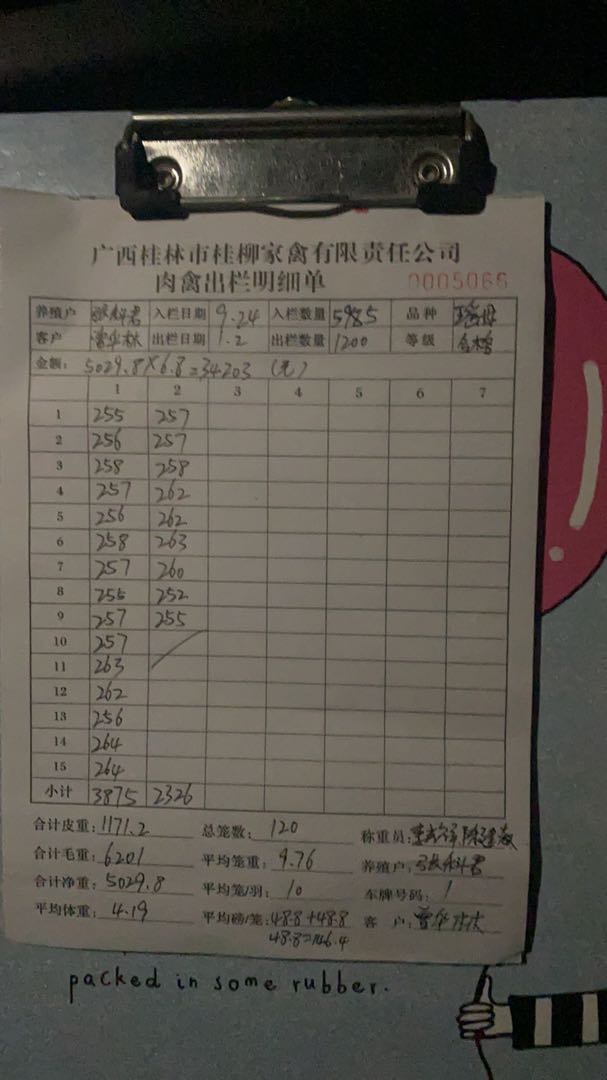 广西桂林市桂柳家禽有限责任公司
肉禽出栏明细单 0005066
养殖户 张科君 入栏日期 9.24 入栏数量 5985 品种
客户 曹华林 出栏日期 1.2 出栏数量 1200 等级 合格
金额: 5029.8×6.8=34203 (元)
1 2 3 4 5 6 7
1 255 257
2 256 257
3 258 258
4 257 262
5 256 262
6 258 263
7 257 260
8 255 252
9 257 255
10 257
11 263
12 262
13 256
14 264
15 264
小计 3875 2326
合计皮重: 1171.2 总笼数: 120 称重员:
合计毛重: 6201 平均笼重: 9.76 养殖户: 张科君
合计净重: 5029.8 平均笼/羽: 10 车牌号码: 1
平均体重: 4.19 平均磅/笼: 48.8+48.8 客户:
48.8=146.4
packed in some rubber.